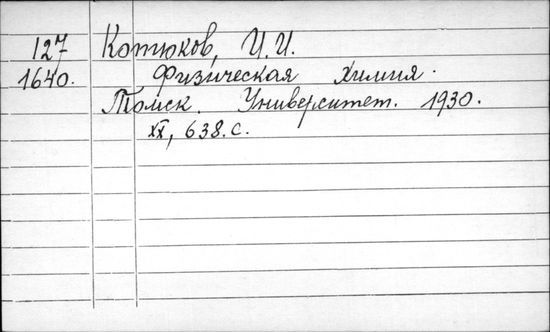 127 Котюков, И.И.
1640. Физическая химия.
Томск. Университет. 1930.
XX, 638.с.